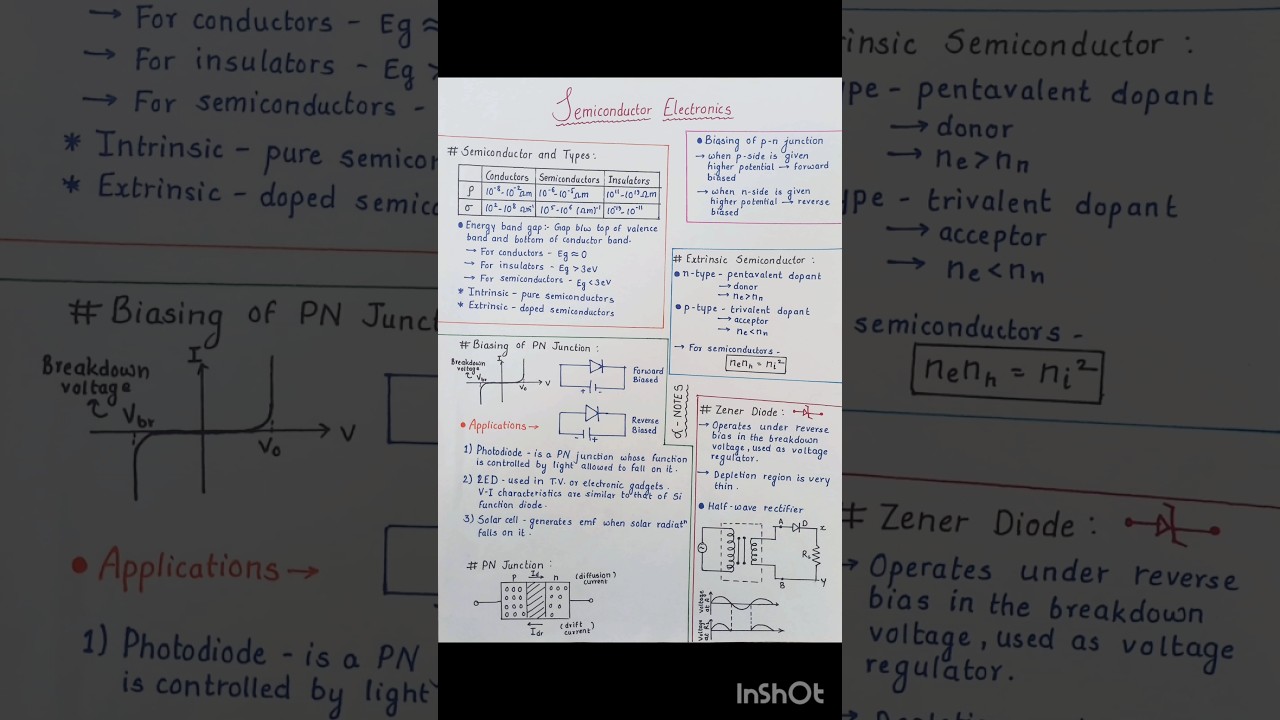 Semiconductor Electronics
# Semiconductor and Types :
Conductors Semiconductors Insulators
ρ 10⁻⁸-10⁻²Ωm 10⁻⁶-10⁻⁵Ωm 10¹¹-10¹⁹Ωm
σ 10²-10⁸ Ωm⁻¹ 10⁵-10⁶ (Ωm)⁻¹ 10⁻¹⁹-10⁻¹¹
• Energy band gap :- Gap b/w top of valence
band and bottom of conductor band.
→ For conductors - Eg ≈ 0
→ For insulators - Eg > 3eV
→ For semiconductors - Eg < 3eV
* Intrinsic - pure semiconductors
* Extrinsic - doped semiconductors
• Biasing of p-n junction
→ when p-side is given
higher potential → forward
biased
→ when n-side is given
higher potential → reverse
biased
# Extrinsic Semiconductor :
• n-type - pentavalent dopant
→ donor
→ ne > nn
• p-type - trivalent dopant
→ acceptor
→ ne < nn
→ For semiconductors -
nenh = ni²
# Biasing of PN Junction :
Breakdown
voltage
I
Vbr
V
V₀
Forward
Biased
+
-
Reverse
Biased
- +
• Applications →
1) Photodiode - is a PN junction whose function
is controlled by light allowed to fall on it.
2) LED - used in T.V. or electronic gadgets.
V-I characteristics are similar to that of Si
function diode.
3) Solar cell - generates emf when solar radiatⁿ
falls on it.
# PN Junction :
P
n
(diffusion)
current
Idr
(drift
current)
α-NOTES
# Zener Diode :
→ Operates under reverse
bias in the breakdown
voltage, used as voltage
regulator.
→ Depletion region is very
thin.
• Half-wave rectifier
A D X
B Y
voltage
at A
voltage
→ For conductors - Eg ≈
→ For insulators - Eg >
→ For semiconductors -
* Intrinsic - pure semicon
* Extrinsic - doped semico
# Biasing of PN Junct
Breakdown
voltage
I
Vbr
V
V₀
• Applications →
1) Photodiode - is a PN
is controlled by light
rinsic Semiconductor :
ype - pentavalent dopant
→ donor
→ ne > nn
ype - trivalent dopant
→ acceptor
→ ne < nn
semiconductors -
nenh = ni²
# Zener Diode :
Operates under reverse
bias in the breakdown
voltage, used as voltage
regulator.
InShOt